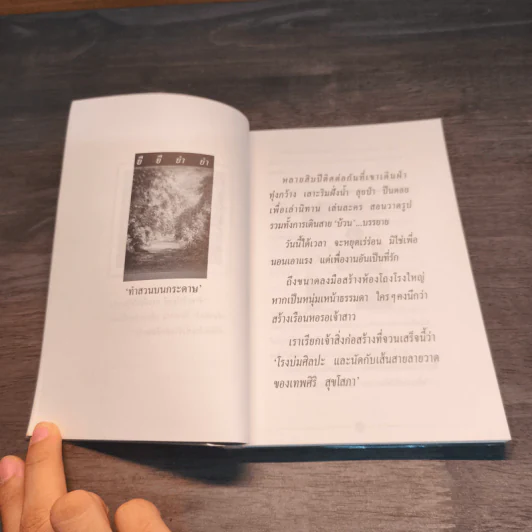 'ทำสวนบนกระดาษ'
หลายสิบปีติดต่อกันที่เขาเดินฝ่า
ทุ่งกว้าง เลาะริมฝั่งน้ำ ลุยป่า ปีนดอย
เพื่อเล่านิทาน เล่นละคร สอนวาดรูป
รวมทั้งการเดินสาย 'บ๊วน'...บรรยาย
วันนี้ได้เวลา จะหยุดเร่ร่อน มิใช่เพื่อ
นอนเอาแรง แต่เพื่องานอันเป็นที่รัก
ถึงขนาดลงมือสร้างห้องโถงโรงใหญ่
หากเป็นหนุ่มเหน้าธรรมดา ใครๆคงนึกว่า
สร้างเรือนหอรอเจ้าสาว
เราเรียกเจ้าสิ่งก่อสร้างที่จวนเสร็จนี้ว่า
'โรงบ่มศิลปะ และนัดกับเส้นสายลายวาด
ของเทพศิริ สุขโสภา'